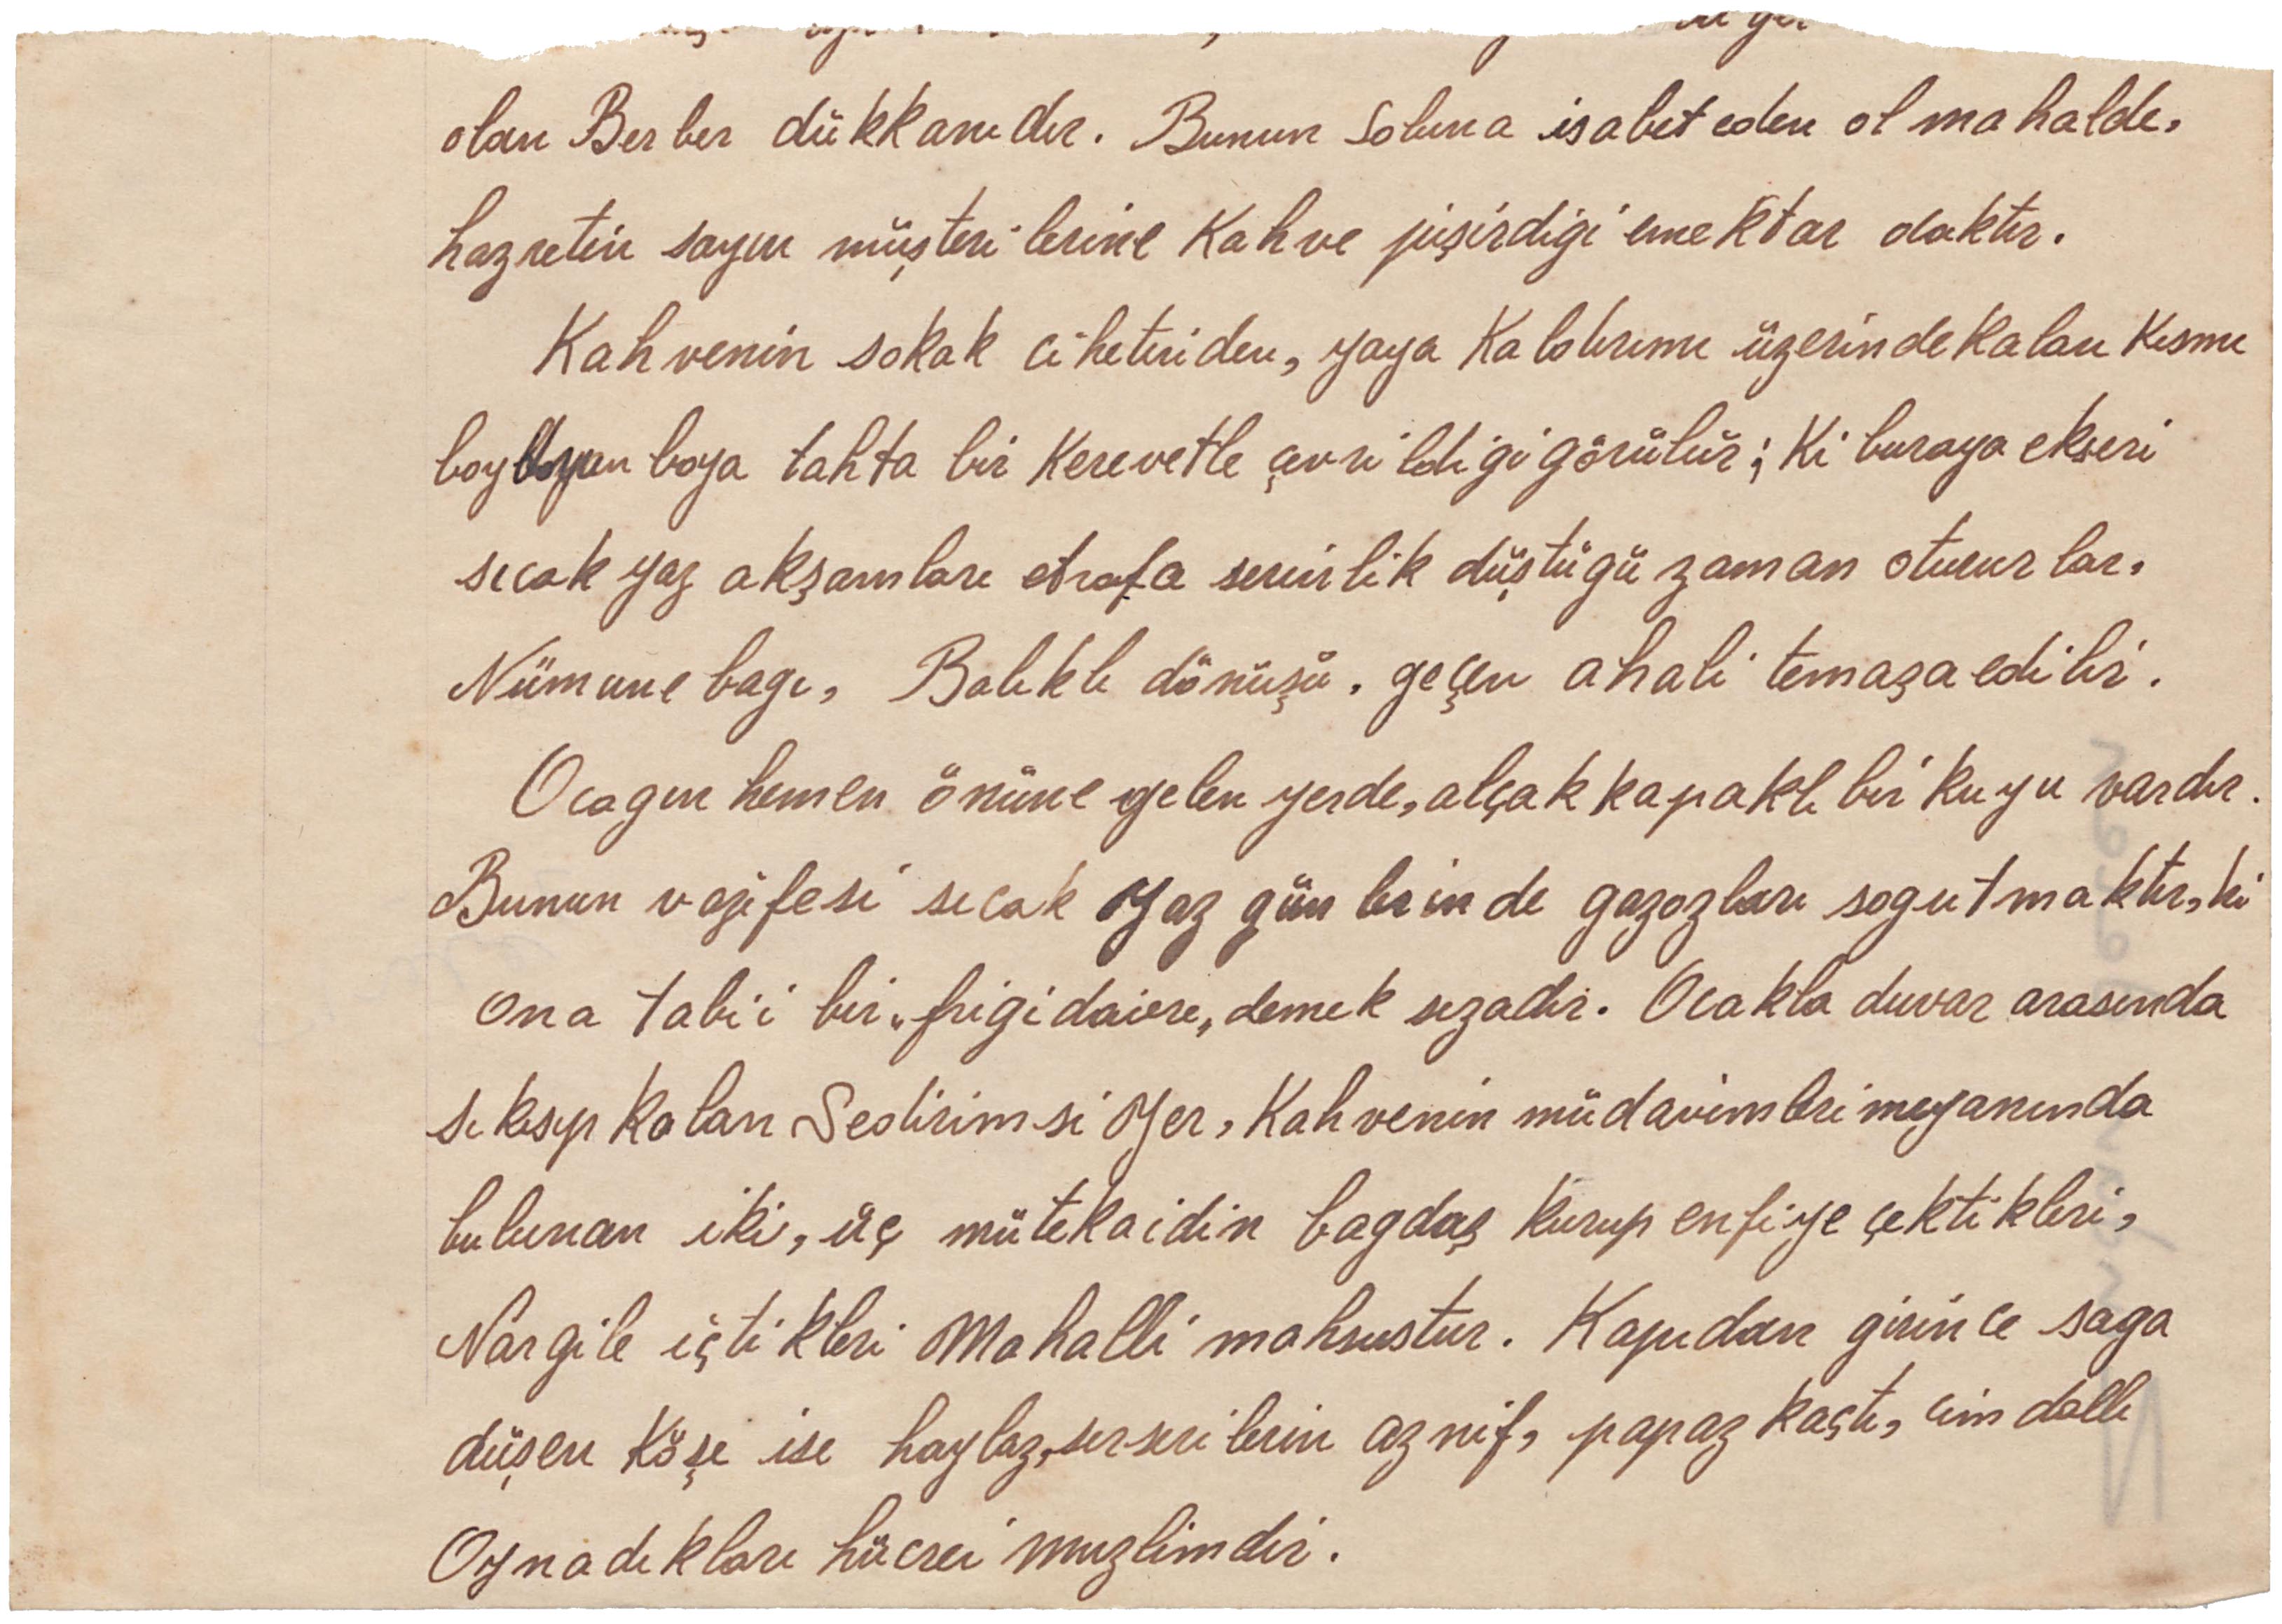 olan Berber dükkanıdır. Bunun Soluna isabet eden ol mahalde,
hazretin sayın müşterilerine Kahve pişirdigi emektar ocaktır.
Kahvenin sokak cihetinden, yaya Kaldırımı üzerinde kalan Kısmı
boydan boya tahta bir Kerevetle çevrildigi görülür; Ki buraya ekseri
sıcak yaz akşamları etrafa serinlik düştügü zaman otururlar.
Nümune bagı, Balıklı dönüşü. geçen ahali temaşa edilir.
Ocagın hemen önüne gelen yerde, alçak kapaklı bir kuyu vardır.
Bunun vazifesi sıcak Yaz günlerinde gazozları sogutmaktır, ki
ona tabi'i bir „frigidaiere„ demek sezadır. Ocakla duvar arasında
sıkışıp kalan Sedirimsi Yer, Kahvenin müdavimleri meyanında
bulunan iki, üç mütekaidin bagdaş kurup enfiye çektikleri,
Nargile içtikleri Mahalli mahsustur. Kapıdan girince saga
düşen Köşe ise haylaz, serserilerin aznif, papaz kaçtı, cim dallı
Oynadıkları hücrei muzlimdir.